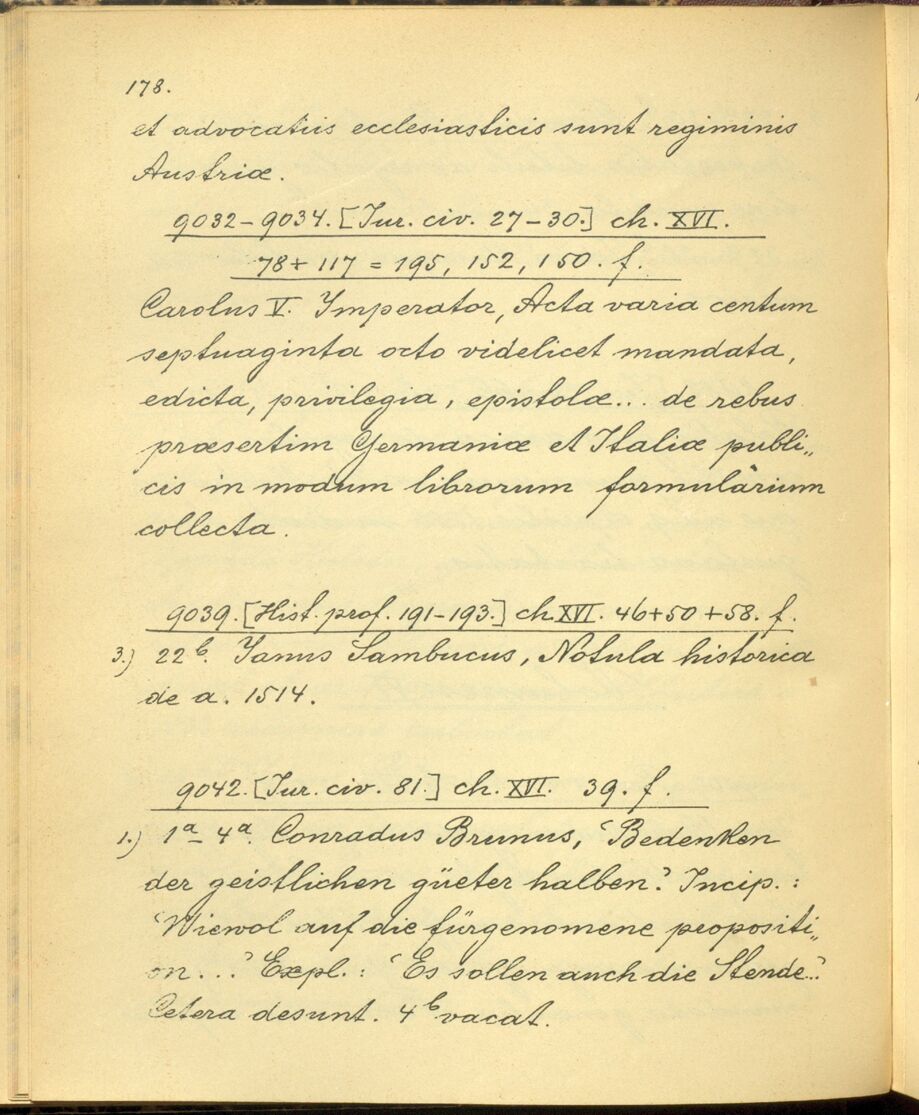 178.
et advocatiis ecclesiasticis sunt regiminis
Austriæ.
9032-9034. [Iur. civ. 27-30.] ch. XVI.
78+117 = 195, 152, 150. f.
Carolus V. Imperator, Acta varia centum
septuaginta octo videlicet mandata,
edicta, privilegia, epistolæ... de rebus
præsertim Germaniæ et Italiæ publi„
cis in modum librorum formularium
collecta.
9039. [Hist. prof. 191-193.] ch. XVI. 46+50+58. f.
3.) 22 b. Ianus Sambucus, Notula historica
de a. 1514.
9042. [Iur. civ. 81.] ch. XVI. 39. f.
1.) 1 a - 4 a. Conradus Brunus, ‘Bedenken
der geistlichen güeter halben’. Incip.:
‘Wiewol auf die fürgenomene propositi„
on...’ Expl.: ‘Es sollen auch die Stende..’
Cetera desunt. 4 b vacat.